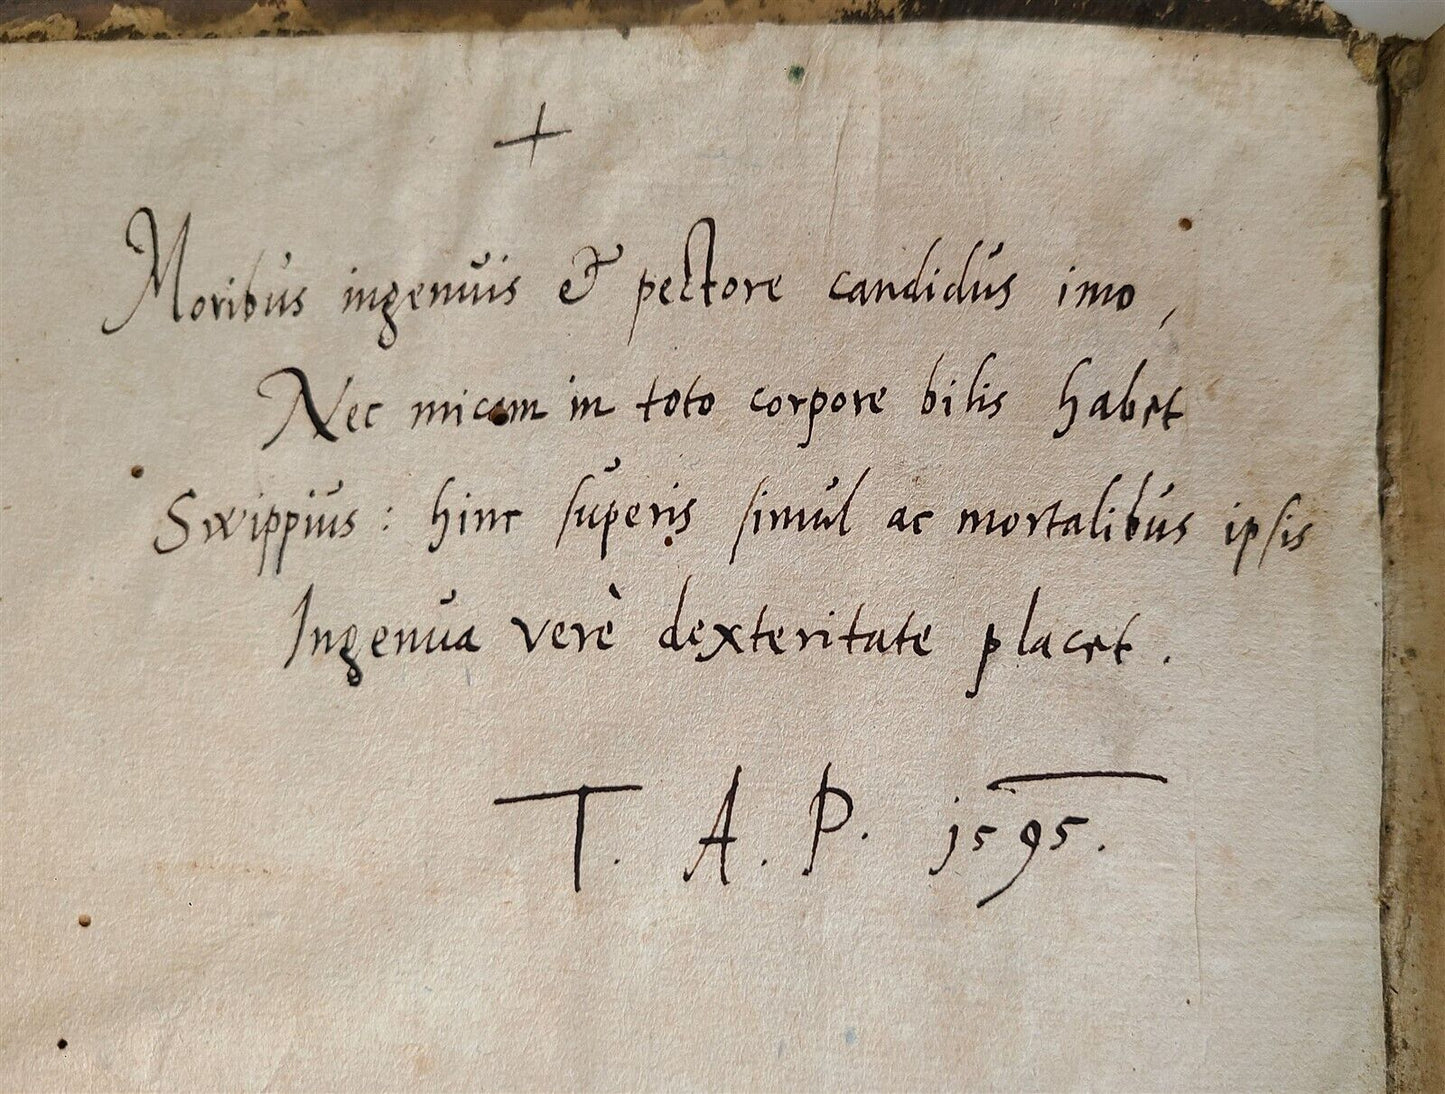 +
Moribus ingenuis & pectore candidus imo,
Nec micam in toto corpore bilis habet
Swippius: hinc superis simul ac mortalibus ipsis
Ingenua verè dexteritate placet.
T. A. P. 1595.